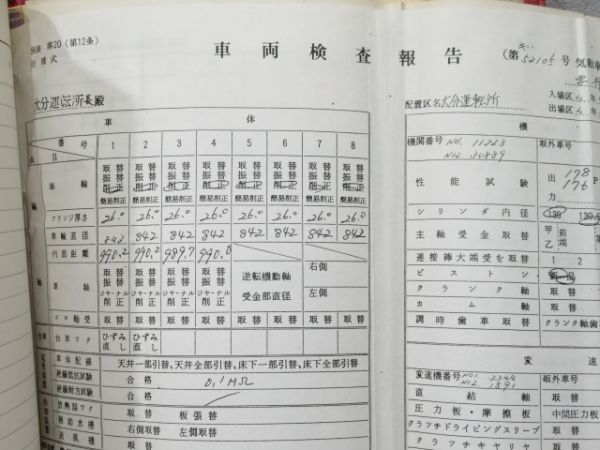 別表 第20 (第12条)
車両検査報告
大分運転所長殿
配置区名 大分運転所
車体
番号 1 2 3 4 5 6 7 8
車輪 取替 取替 取替 取替 取替 取替 取替 取替
振替 振替 振替 振替 振替 振替 振替 振替
削正 削正 削正 削正 削正 削正 削正 削正
簡易削正 簡易削正 簡易削正 簡易削正 簡易削正 簡易削正 簡易削正 簡易削正
フランジ厚さ 26.0 26.0 26.0 26.0 26.0 26.0 26.0 26.0
車輪直径 842 842 842 842 842 842 842 842
内面距離 990.2 990.2 989.7 990.0
車軸 取替 取替 取替 取替
振替 振替 振替 振替
ジャーナル削正 ジャーナル削正 ジャーナル削正 ジャーナル削正
逆転機動軸
受金部直径
右側
左側
コロ軸受 取替 取替 取替 取替 取替 取替 取替 取替
台車 台車ワク ひずみ直し ひずみ直し
車体配線 天井一部引替、天井全部引替、床下一部引替、床下全部引替
絶縁抵抗試験 合格 0.1MΩ
絶縁耐力試験 合格
放熱器ワク 取替 板張替
補助水槽 右側取替 左側取替
送風機 取替
機
機関番号 No1. 11223
No2. 30889
取外車号
性能試験 出力 178
176
シリンダ内径 130
主軸受金取替 甲 前
乙 端
連接棒大端受を取替 1 2
ピストン
クランク軸 取替
カム軸 取替
調時歯車取替 クランク軸歯
変速
変速機番号 取外車号
直結軸 取替
圧力板・摩擦板 中間圧力板
クラツチドライビングスリーブ 取替
クラツチキヤリヤ 取替